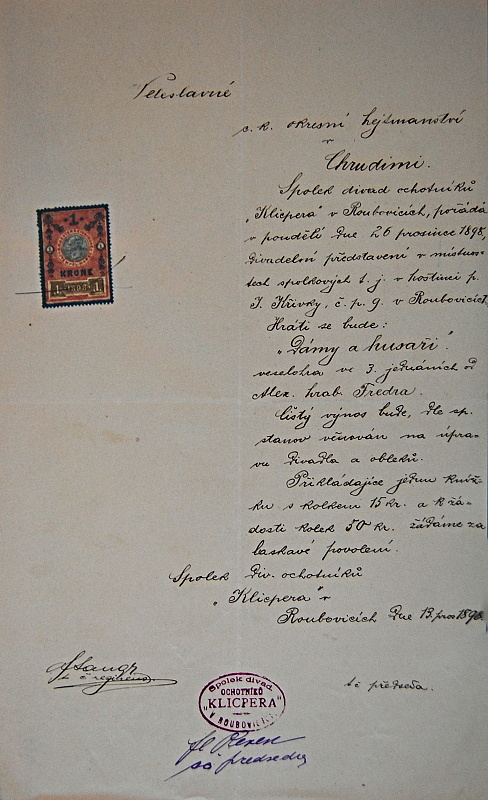 Veleslavné
c. k. okresní hejtmanství
v
Chrudimi.
Spolek divad ochotníků
„Klicpera" v Roubovicích, pořádá
v pondělí dne 26 prosince 1898,
divadelní představení v místnos-
tech spolkových t. j. v hostinci p.
J. Křivky, č. p. 9. v Roubovicích.
Hráti se bude:
„Dámy a husaři".
veselohra ve 3. jednáních od
Alex. hrab. Fredra.
Čistý výnos bude, dle sp.
stanov věnován na úpra-
vu divadla a obleků.
Přikládajíce jednu kníž-
ku s kolkem 15 kr. a k žá-
dosti kolek 50 kr. žádáme za
laskavé povolení.
Spolek div. ochotníků
„Klicpera" v
Roubovicích dne 13. pros 1898
1
KRONE
1 1898 1
t č režisér
t č předseda.
Spolek divad.
OCHOTNÍKŮ
„KLICPERA"
V ROUBOVICÍCH
předseda